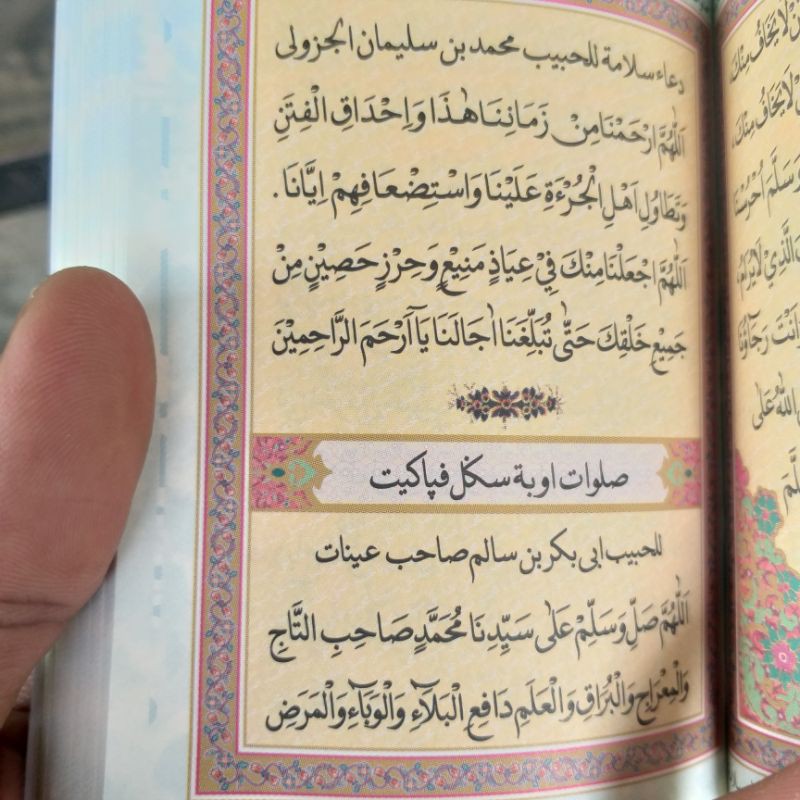 دعاء سلامة للحبيب محمد بن سليمان الجزولى
اَللّٰهُمَّ ارْحَمْنَا مِنْ زَمَانِنَا هٰذَا وَاِحْدَاقِ الْفِتَنِ
وَتَطَاوُلِ اَهْلِ الْجُرْءَةِ عَلَيْنَا وَاسْتِضْعَافِهِمْ اِيَّانَا .
اَللّٰهُمَّ اجْعَلْنَا مِنْكَ فِيْ عِيَاذٍ مَنِيْعٍ وَحِرْزٍ حَصِيْنٍ مِنْ
جَمِيْعِ خَلْقِكَ حَتّٰى تُبَلِّغَنَا اٰجَالَنَا يَآ اَرْحَمَ الرَّاحِمِيْنَ
صلوات اوبة سكل فڽاكيت
للحبيب ابى بكر بن سالم صاحب عينات
اَللّٰهُمَّ صَلِّ وَسَلِّمْ عَلٰى سَيِّدِنَا مُحَمَّدٍ صَاحِبِ التَّاجِ
وَالْمِعْرَاجِ وَالْبُرَاقِ وَالْعَلَمِ دَافِعِ الْبَلَآءِ وَالْوَبَاءِ وَالْمَرَضِ
لَا يَخَافُ مِنْكَ
لَا يَخَافُ مِنْكَ،
وَسَلَّمَ اُحْرُسْنَا
وَالَّذِيْ لَا يُرَامُ،
وَاَنْتَ رَجَاؤُنَا
اللّٰهُ عَلٰى